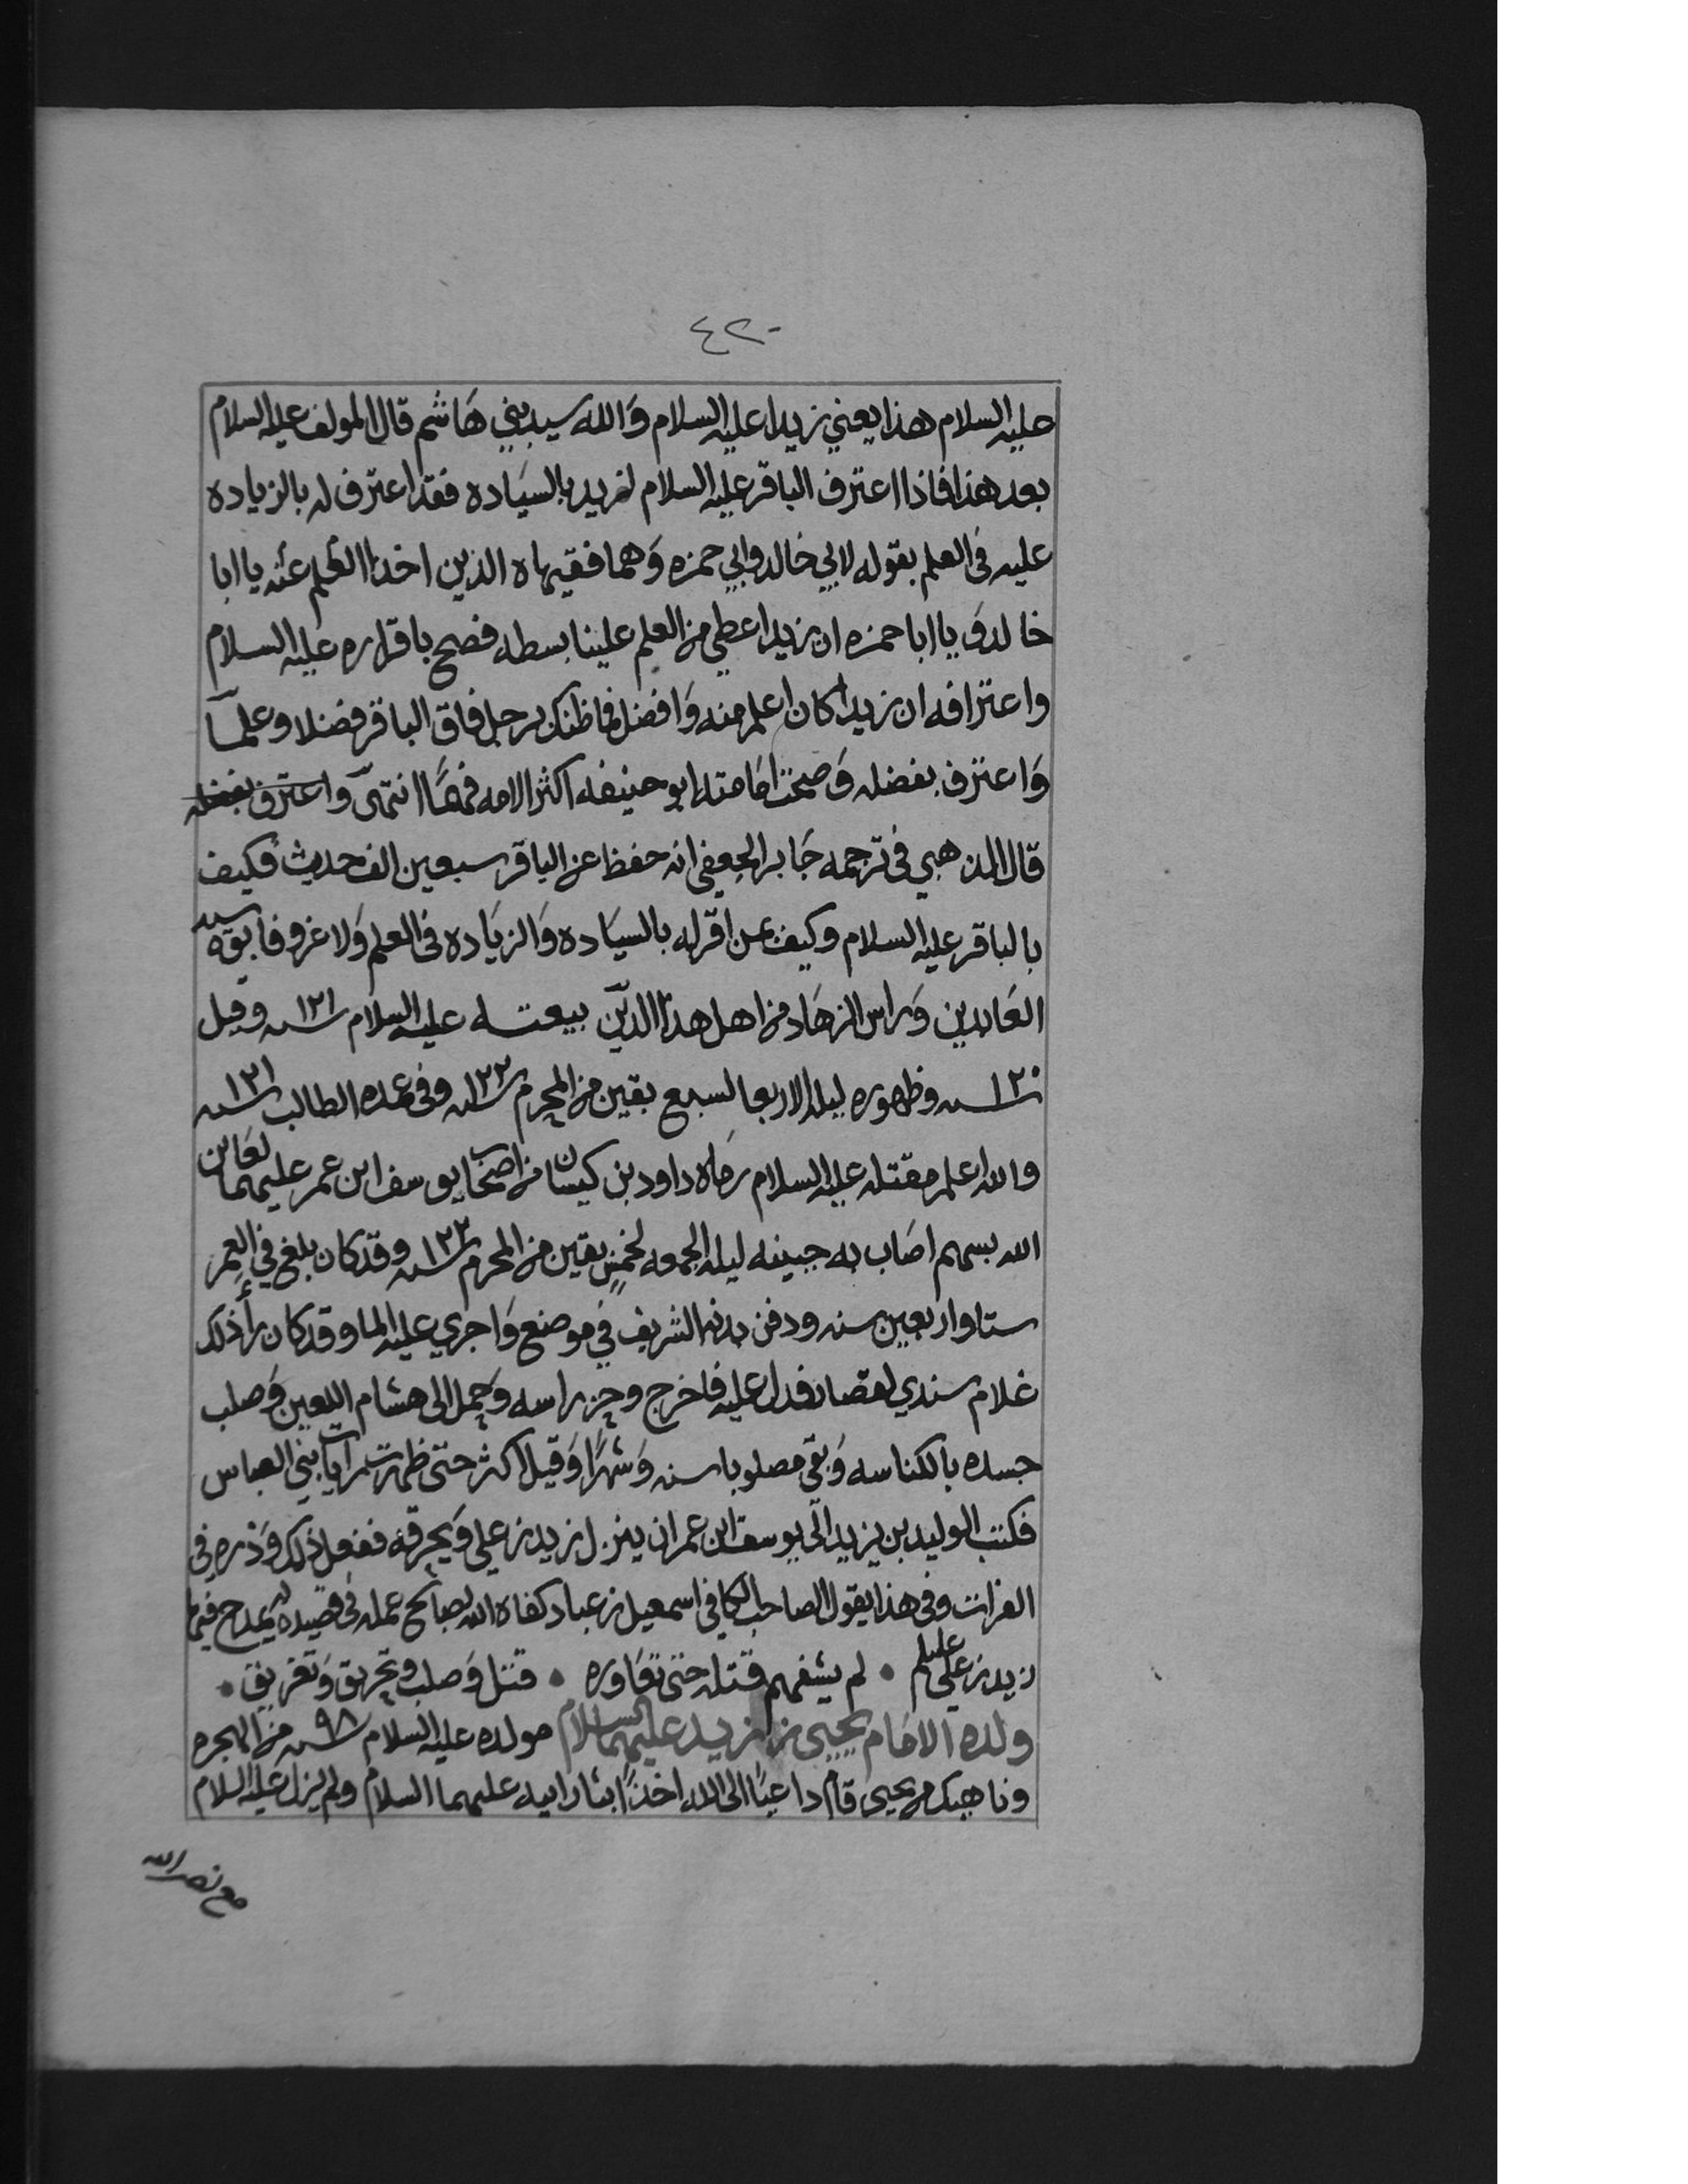 ٤٢٠
عليه السلام هذا يعني زيدا عليه السلام وَالله سيد بني هَاشم قال المولف عليه السلام
بعد هذا فاذا اعترف الباقر عليه السلام لزيد بالسيَاده فقد اعترف له بالزياده
عليه في العلم بقوله لابي خالد وابي حمزه وَهما فقيهاه الذين اخذا العلم عنه يا ابا
خالد وَيا ابا حمزه ان زيدا اعطي من العلم علينا بسطه فصح باقراره عليه السلام
واعترافه ان زيدا كان اعلم منه وَافضل فما ظنك برجل فاق الباقر فضلا وعلمًا
وَاعترف بفضله وَصحت امَامته ابو حنيفه اكثر الامه فمهمَّا انتمى واعترف بفضله
قال الذهبي في ترجمه جَابر الجعفي انه حفظ عن الباقر سبعين الف حديث فكيف
بالباقر عليه السلام وكيف بمن اقر له بالسيَاده وَالزيَاده في العلم وَلا غرو فابوه سيد
العَابدين وَراس الزهَاد من اهل هذا الدّين بيعتـه عليه السلام ١٢١ سنه وقيل
١٢٠ سنه وظهوره ليله الاربعا لسبع بقين من المحرم ١٢٢ سنه وفي عمده الطالب ١٢١ سنه
والله اعلم مقتله عليه السلام رمَاه داود بن كيسان من اصحَاب يوسف ابن عمر عليهما لعَاين
الله بسهم اصَاب به جبينه ليله الجمعه لخمس بقين من المحرم ١٢٢ سنه وقد كان بلغ في العمر
ستا واربعين سنه ودفن بدنه الشريف في موضع وَاجري عليه الما وقد كان رأ ذلك
غلام سندي لقصار فدل عليه فاخرج وحز راسه وَحمل الى هشام اللعين وَصلب
جسده بالكناسه وَبقي مصلوبا سنه وَشهرًا وَقيل اكثر حتى ظهرت رايات بني العباس
فكتب الوليد بن يزيد الى يوسف ابن عمر ان ينزل زيد بن علي وَيحرقه ففعل ذلك وَذره في
الفرات وفي هذا يقول الصاحب الكافي اسمعيل بن عباد كفاه الله بصالح عمله في قصيده له يمدح فيها
زيد بن علي عليلم • لم يشفهم قتله حتى تعَاوره • قتل وَصلب وتحريق وَتغريق •
ولده الامَام يحيى بن زيد عليهما السلام مولده عليه السلام ٩٨ سنه من الهجره
وناهيك من يحيى قام داعيًا الى الله اخذًا بثار ابيه عليهما السلام ولم يزل عليه السلام
مع نصر الله